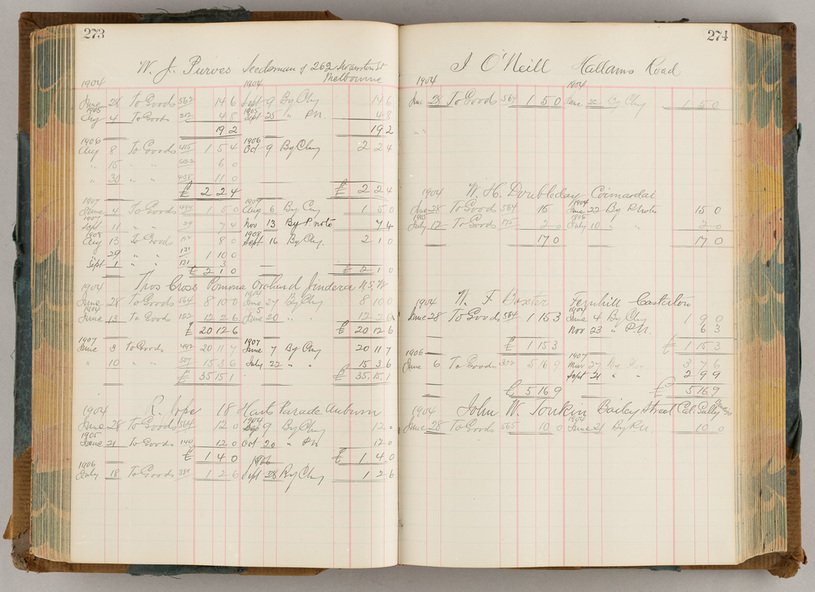 273
W. J. Purves Seedsman of 262 Swanston St
Melbourne
1904 1904
28 To Goods 14 6 Sept 9 By Chq 14 6
1905
Aug 4 To Goods 4 8 Sept 25 " P.N. 4 8
19 2 19 2
1906 1906
Aug 8 To Goods 1 5 4 Oct 9 By Chq 2 2 4
" 15 " " 6 0
" 30 " " 11 0
£ 2 2 4 £ 2 2 4
1907 1907
4 To Goods 1 5 0 Aug 6 By Chq 1 5 0
Sept 11 " " 7 4 Nov 13 By P. note 7 4
1908 1908
Aug 13 To Goods 8 0 Sept 16 By Chq 2 1 0
" 29 " " 131 1 10 0
Sept 1 " " 131 3
£ 2 1 0 £ 2 1 0
1904 Cross Pomona Orchard Jindera N.S.W.
June 28 To Goods 8 10 0 June 27 By Chq 8 10 0
June 13 To Goods 102 12 2 6 June 20 " " 12 2 6
£ 20 12 6 £ 20 12 6
1907 1907
June 3 To Goods 20 11 7 June 7 By Chq 20 11 7
" 10 " " 15 3 6 July 22 " " 15 3 6
£ 35 15 1 £ 35 15 1
1904 R. 18 Harts Parade Auburn
June 28 To Goods 12 0 9 By Chq 12 0
1905
June 21 To Goods 140 12 0 Oct 20 " P.N. 12 0
£ 1 4 0 £ 1 4 0
1906 1906
July 18 To Goods 1 2 6 Sept 28 By Chq 1 2 6
274
J O'Neill Hallams Road
1904 1904
June 28 To Goods 1 5 0 June 22 By Chq 1 5 0
W. H. Doubleday Coimadai
1904
June 28 To Goods 584 15 June 22 By P. Note 15 0
1905
July 12 To Goods 2 0 July 10 " " 2 0
17 0 17 0
1904 W. F. Baxter Fernhill Castlerton
1904
June 28 To Goods 584 1 15 3 June 4 By Chq 1 9 0
Nov 23 " P.N. 6 3
£ 1 15 3 £ 1 15 3
1906 1907
June 6 To Goods 5 16 9 Mar 27 By
Sept 21 " " 2 9 9
£ 5 16 9 £ 5 16 9
1904 John W. Tonkin Bailey Street
June 28 To Goods 565 10 0 June 21 By P.N. 10 0